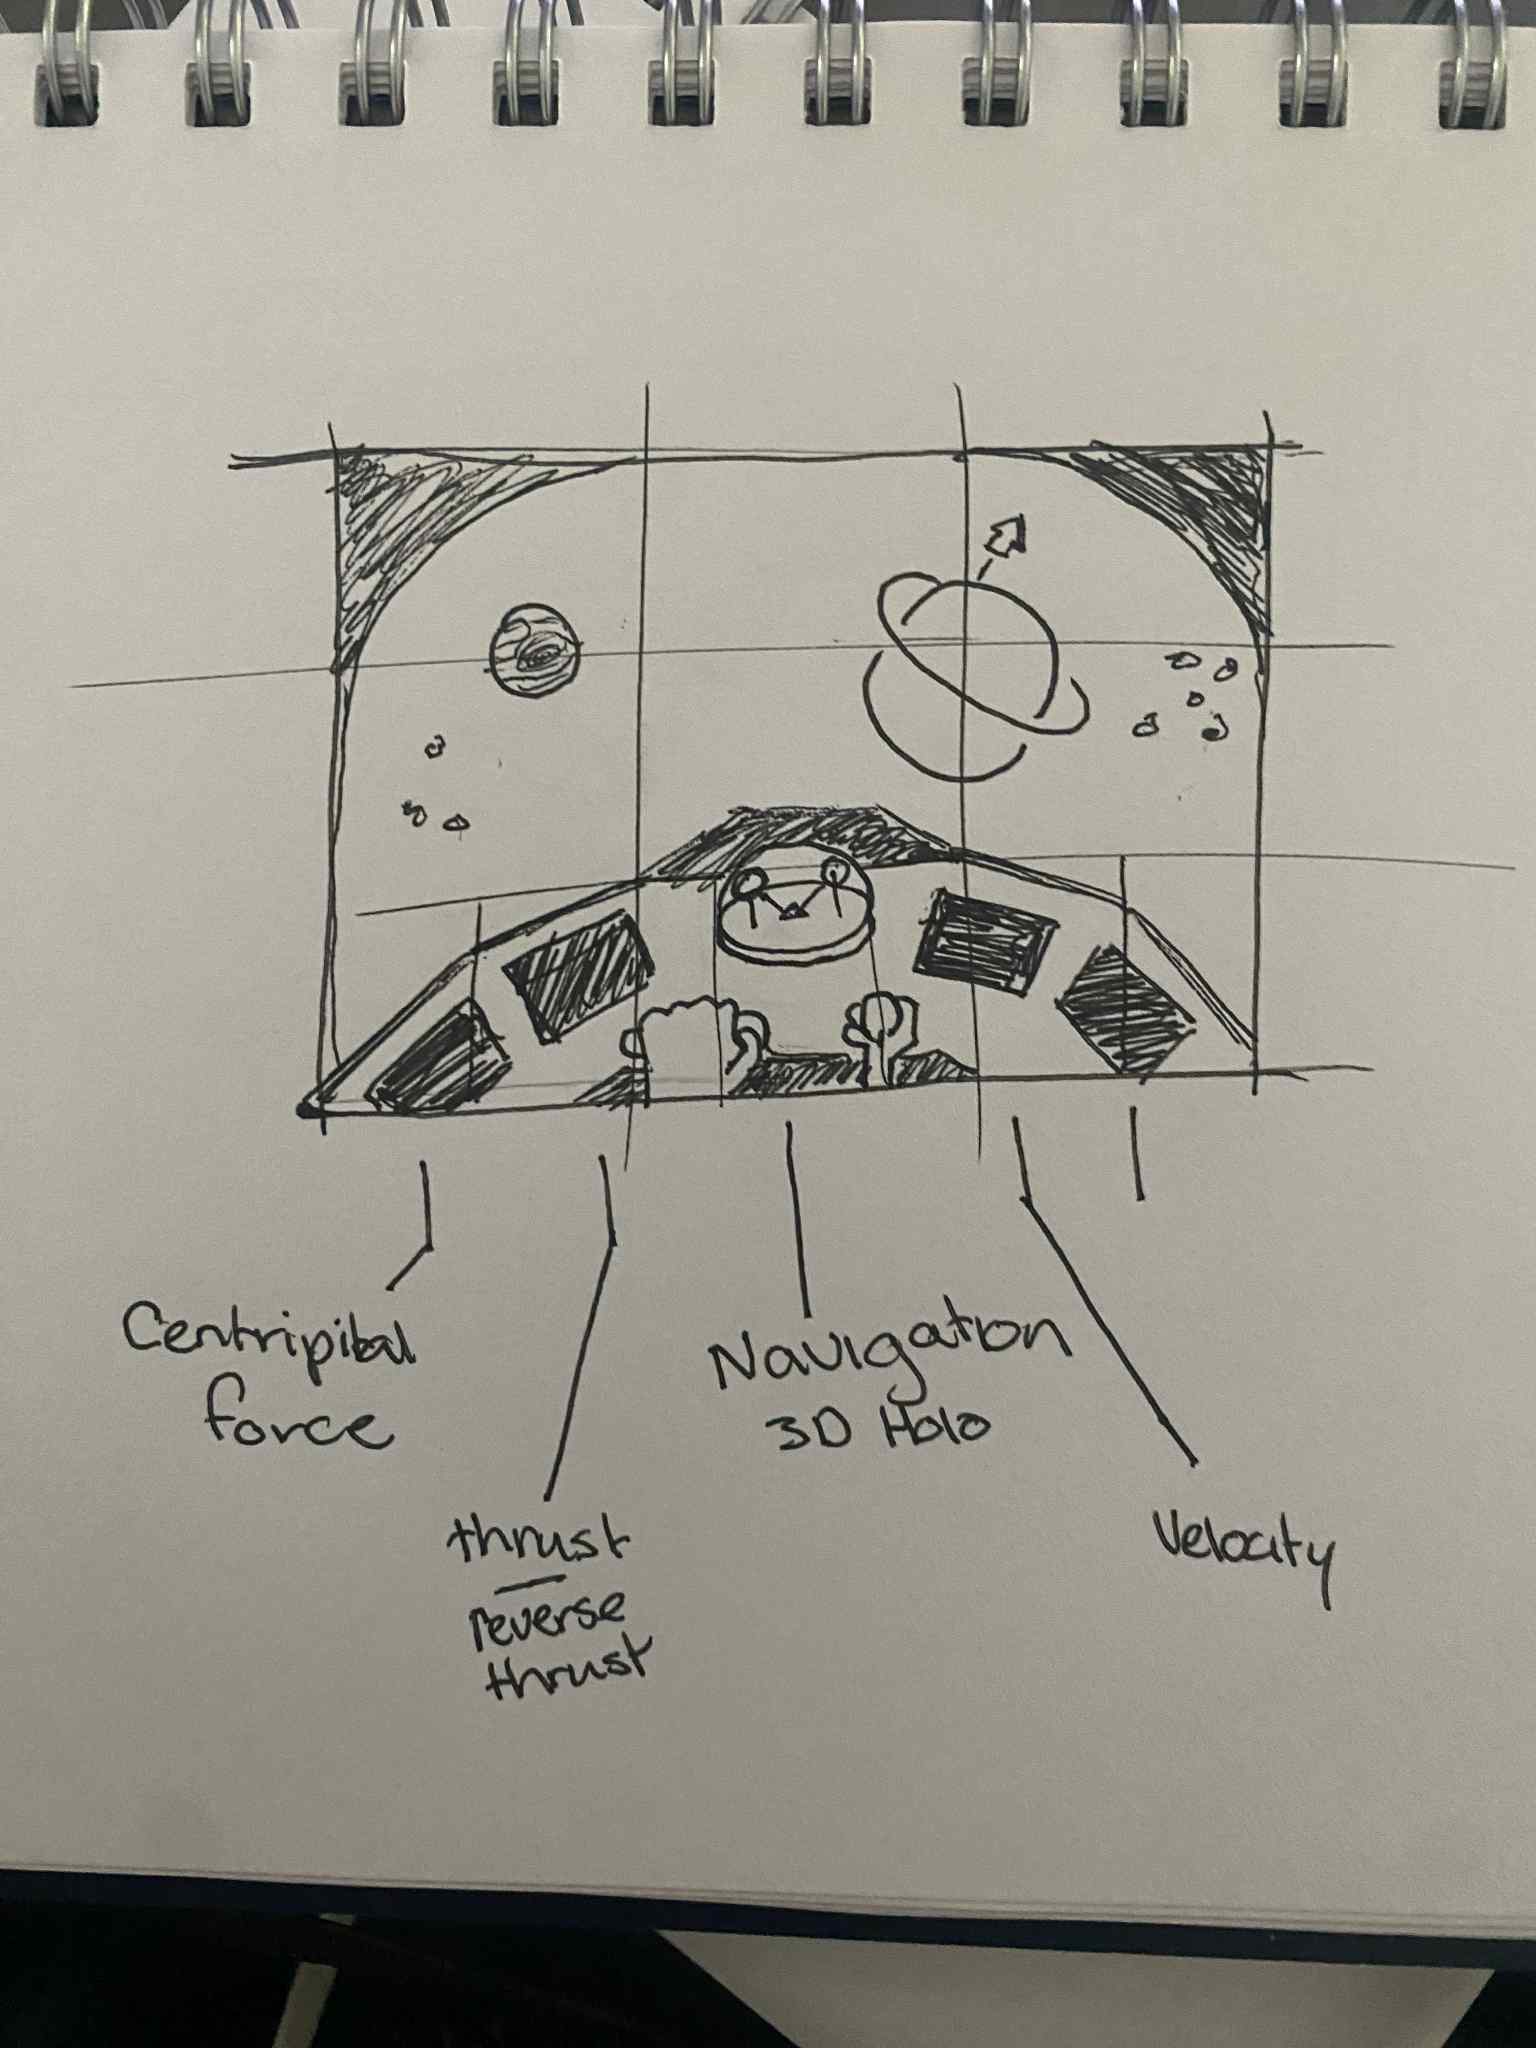 Centripital
force
thrust
reverse
thrust
Navigation
3D Holo
Velocity